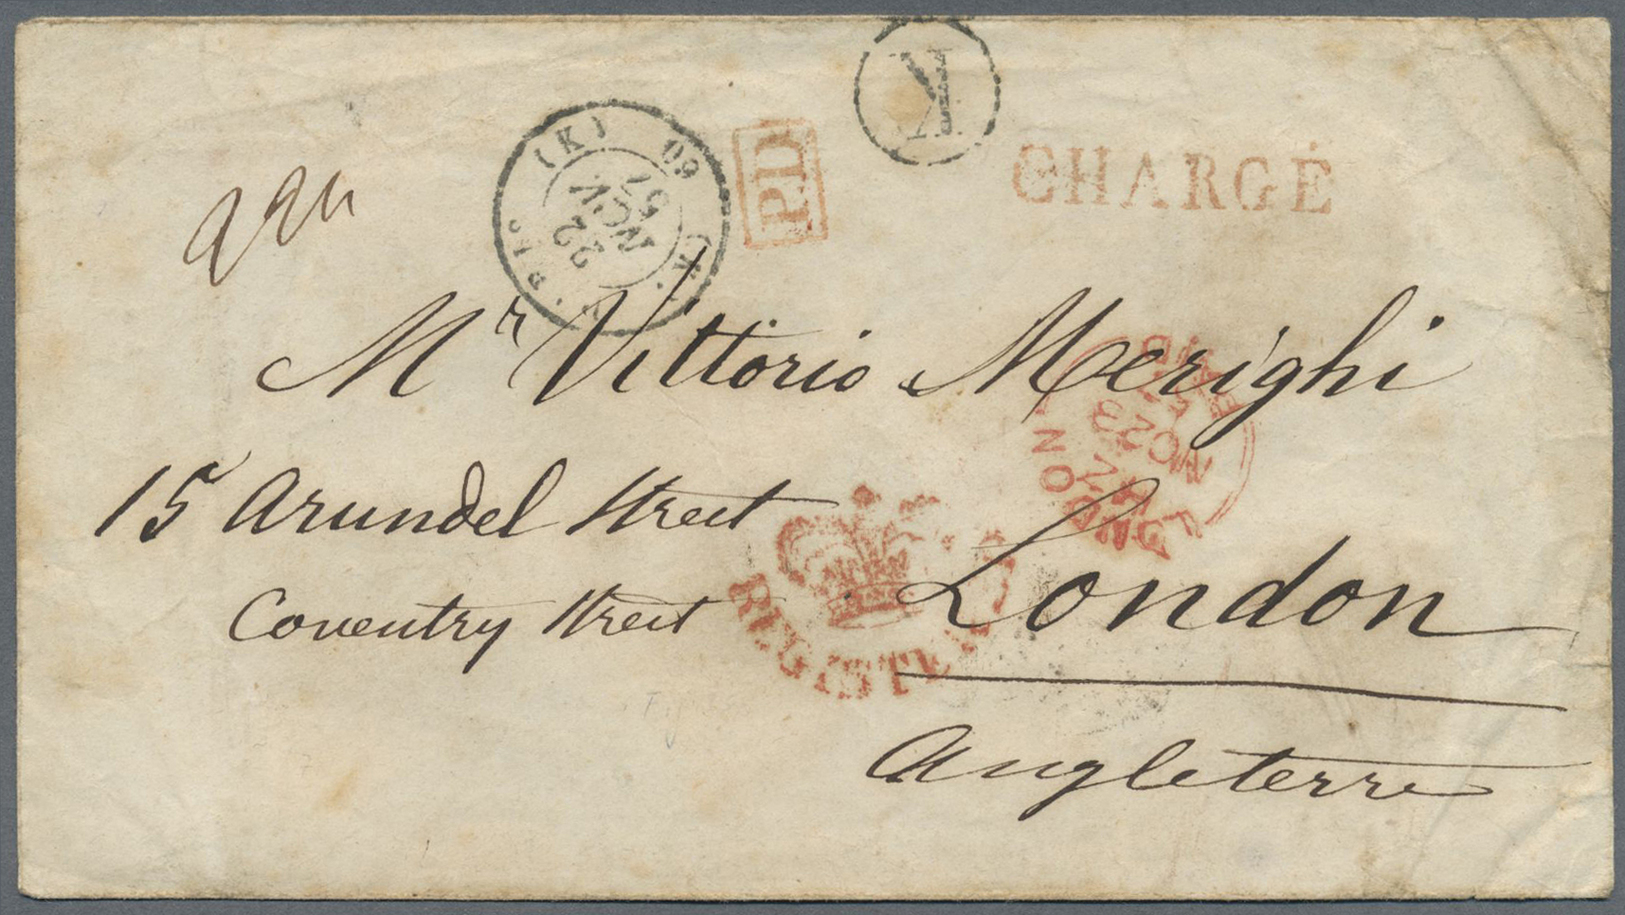 K
(K) 60
22
NOV
57
PD
CHARGÉ
Mr Vittorio Merighi
15 Arundel Street
Coventry Street
London
Angleterre
LONDON
NO 23
57
REGISTERED